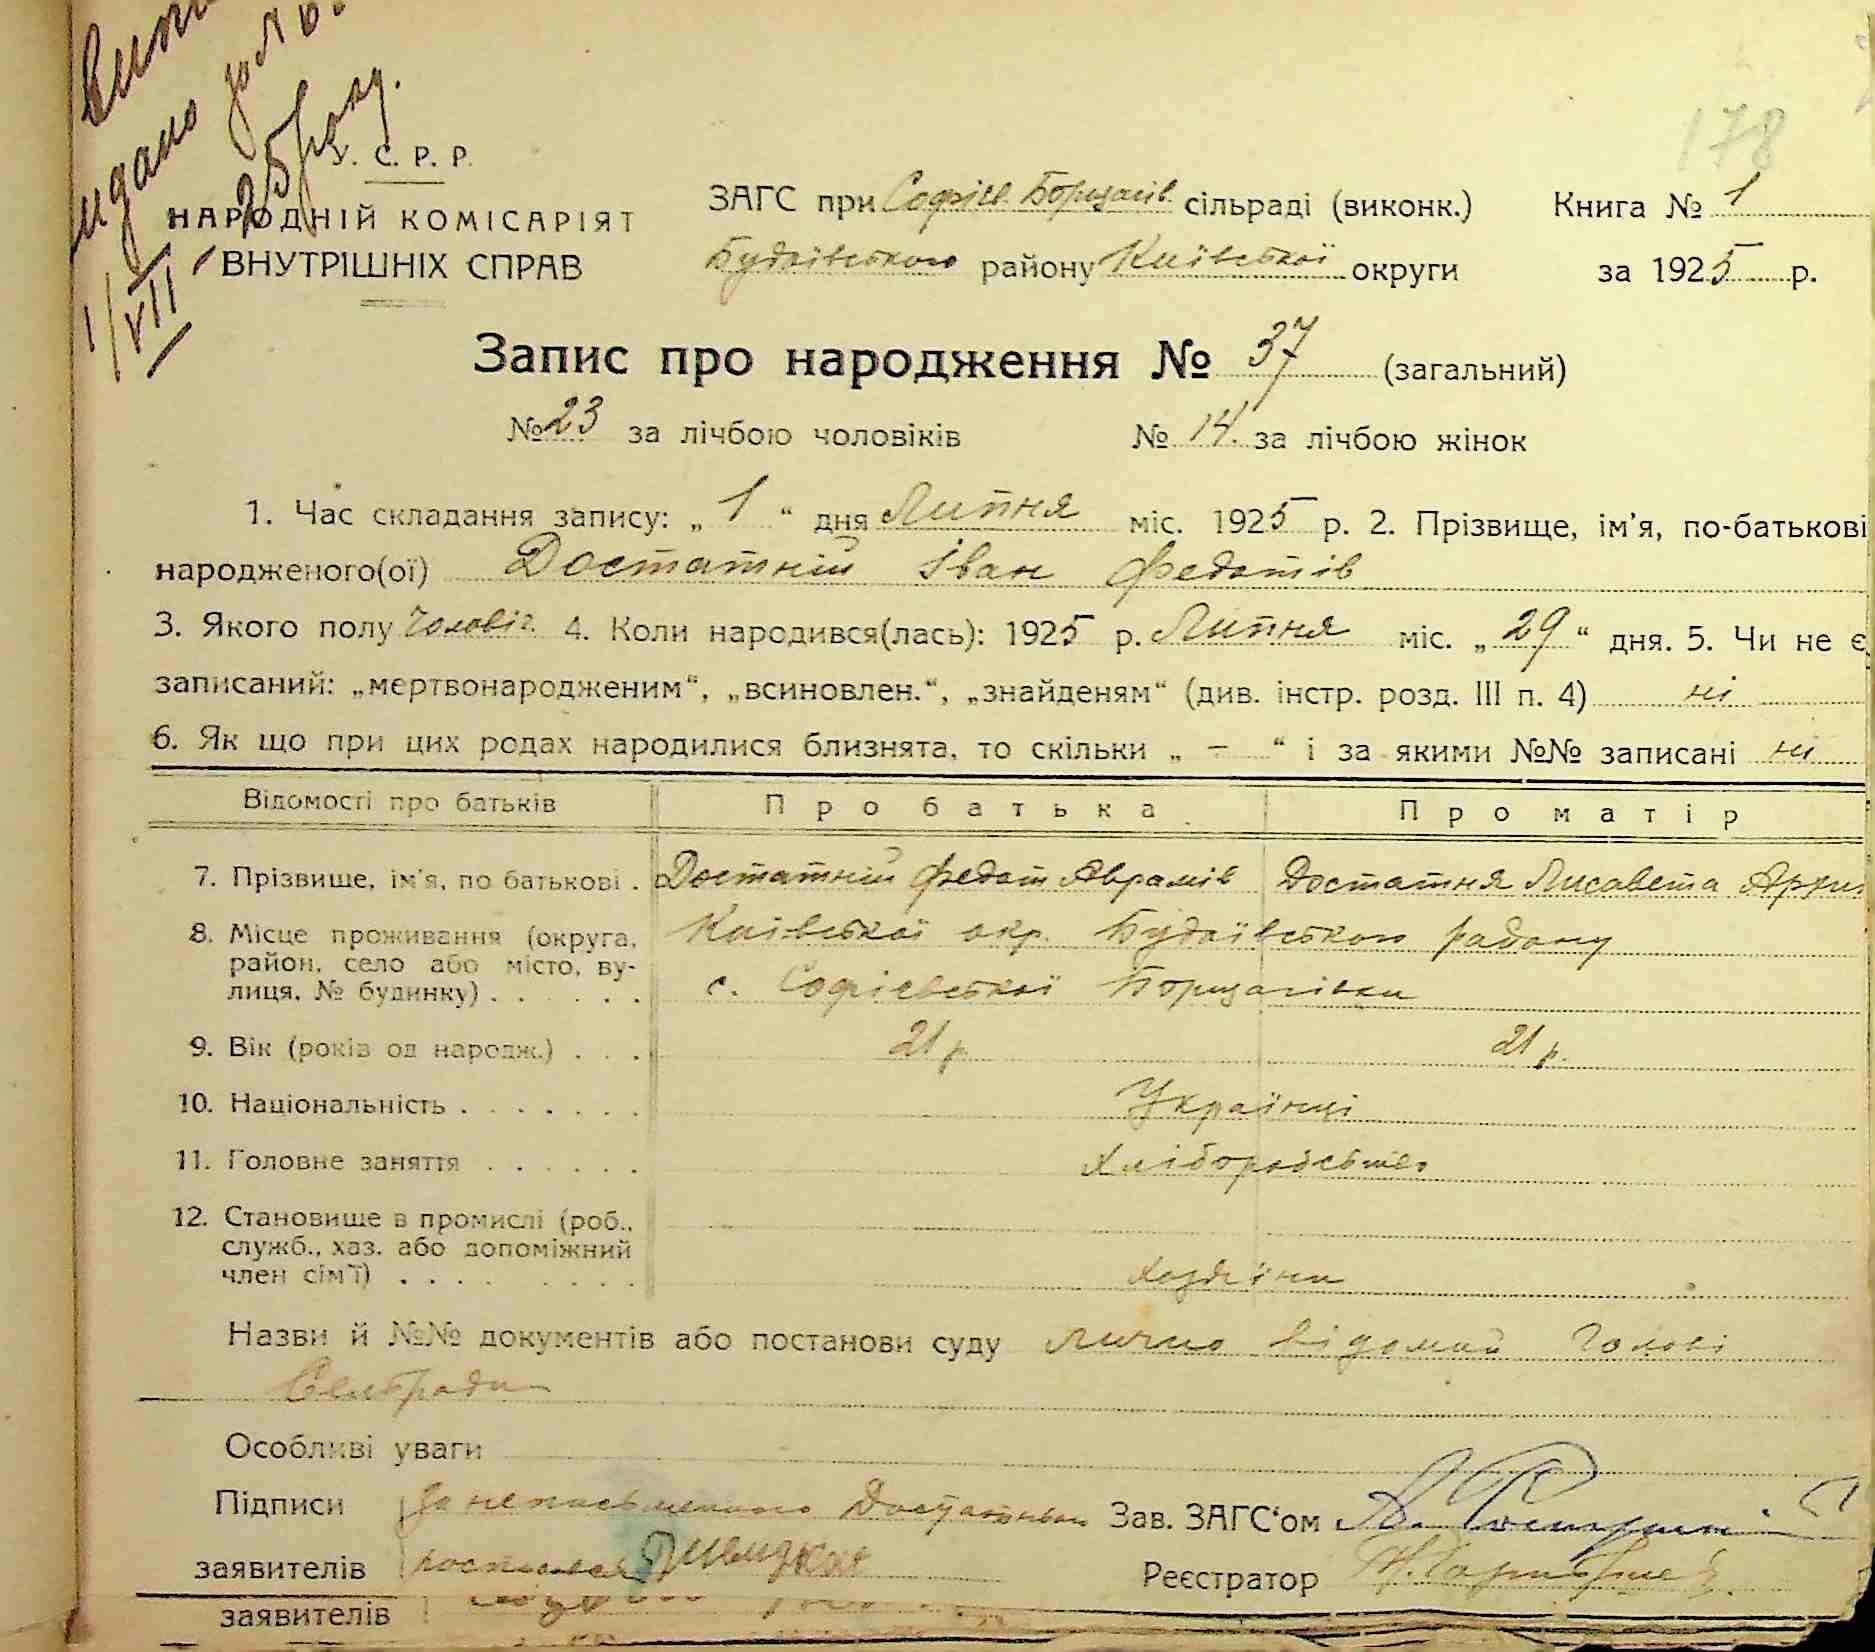 178
видано
1/VII
У. С. Р. Р.
НАРОДНІЙ КОМІСАРІЯТ
ВНУТРІШНІХ СПРАВ
ЗАГС при Софієв. Борщагів. сільраді (виконк.)
Будаївського району Київської округи
Книга № 1
за 1925 р.
Запис про народження № 37 (загальний)
№ 23 за лічбою чоловіків № 14. за лічбою жінок
1. Час складання запису: „ 1 “ дня Липня міс. 1925 р. 2. Прізвище, ім’я, по-батькові
народженого(ої) Достатній Іван Федотів
3. Якого полу Чоловіч. 4. Коли народився(лась): 1925 р. Липня міс. „ 29 “ дня. 5. Чи не є
записаний: „мертвонародженим“, „всиновлен.“, „знайденям“ (див. інстр. розд. III п. 4) ні
6. Як що при цих родах народилися близнята, то скільки „ – “ і за якими №№ записані ні
Відомості про батьків Про батька Про матір
7. Прізвище, ім’я, по батькові . Достатній Федот Аврамів Достатня Лисавета
8. Місце проживання (округа, район, село або місто, вулиця, № будинку) . . . . . .
Київської окр. Будаївського району
с. Софієвської Борщагівки
9. Вік (років од народж.) . . . 21 р. 21 р.
10. Національність . . . . . . . Українці
11. Головне заняття . . . . . . Хліборобство
12. Становище в промислі (роб.,
служб., хаз. або допоміжний
член сім’ї) . . . . . . . . Хазяїни
Назви й №№ документів або постанови суду лично відомий Голові
Сельради
Особливі уваги
Підписи За неписьменного Достатнього Зав. ЗАГС‘ом
заявителів росписався Швидкий Реєстратор
заявителів